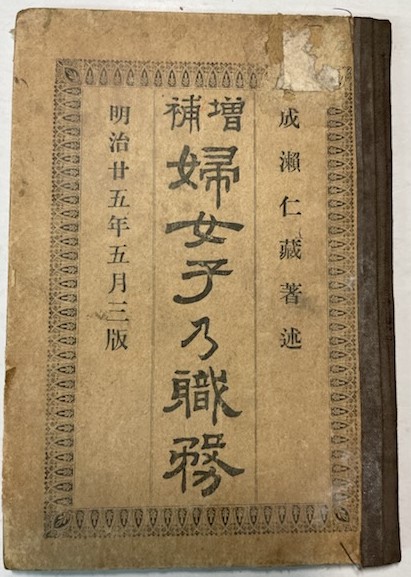 成瀬仁藏著述
増補
婦女子乃職務
明治廿五年五月三版